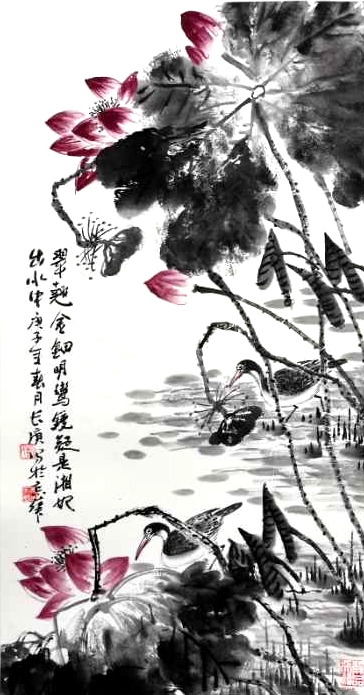 翠翘金钿明鸾镜疑是湘妃
出水中庚子年春月长庚写於志绰